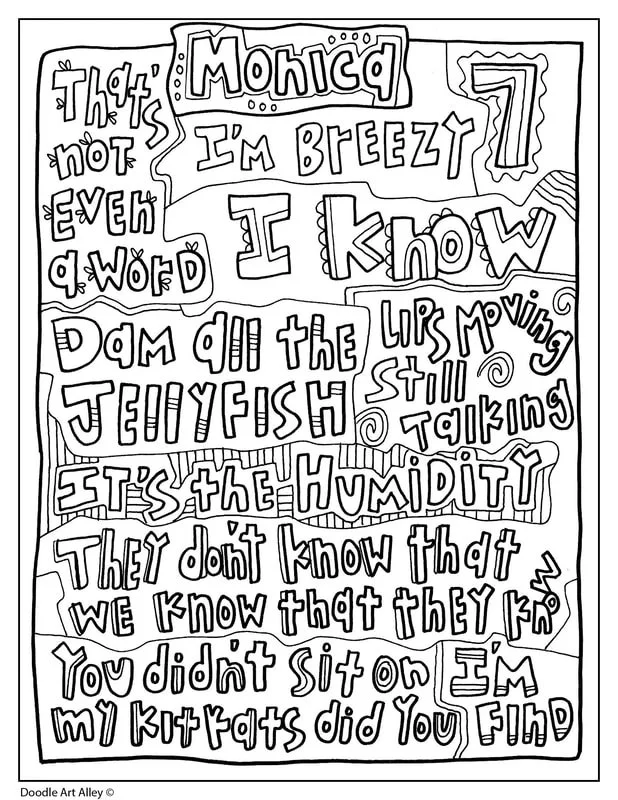 Monica
That's
not
Even
a word
I'm Breezy
7
I know
Dam all the
Jellyfish
Lips Moving
Still
Talking
It's the Humidity
They don't know that
we know that they know
You didn't sit on
my kit kats did You
I'm
Find
Doodle Art Alley ©